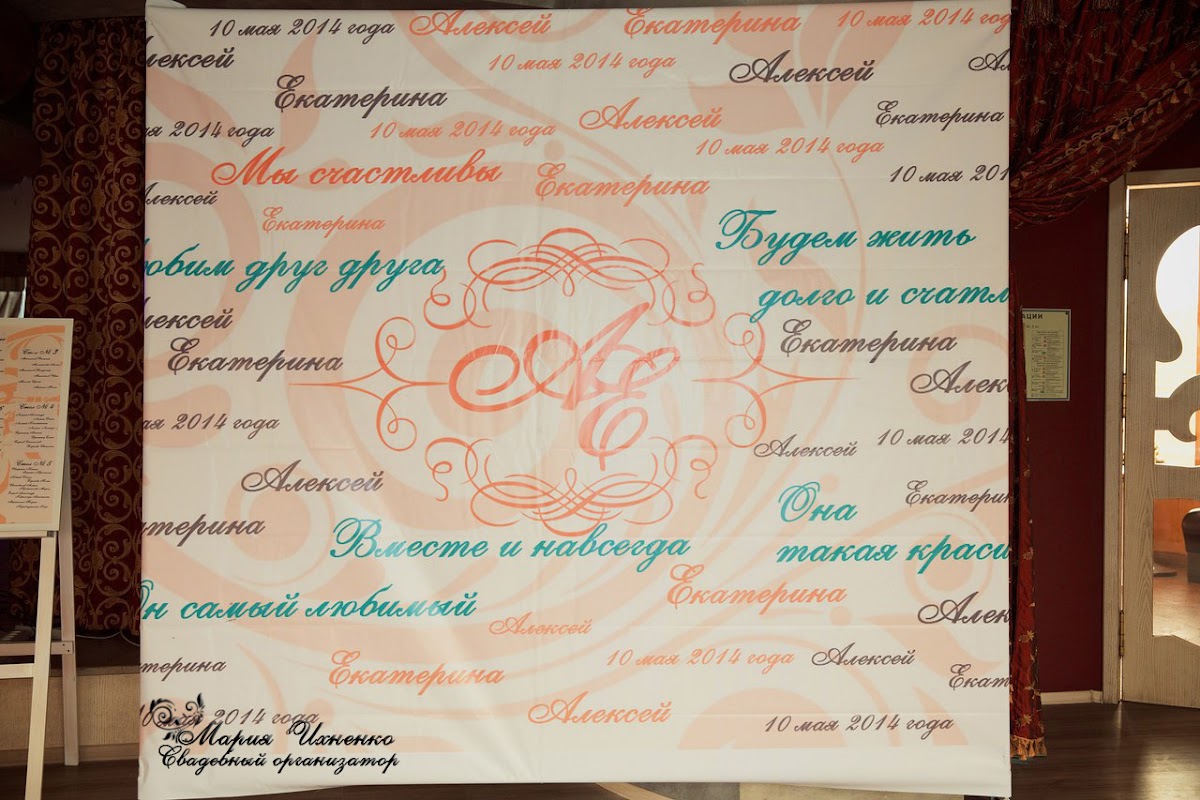 10 мая 2014 года Алексей Екатерина 10 мая 2014 год
лексей 10 мая 2014 года Алексей Ал
Екатерина Алексей Екатерина
я 2014 года 10 мая 2014 года 10 мая 2014 года
Мы счастливы Екатерина 10 мая 201
Алексей
Екатерина
Будем жить
юбим друг друга
долго и счатл
лексей
Екатерина Екатерина
АЕ
Алек
ая 2014 года Алексей 10 мая 2014
Алексей
Екатерин
Она
атерина
Вместе и навсегда такая краси
Он самый любимый Екатерина Алек
Алексей
терина Екатерина 10 мая 2014 года Алексей
Екат
10 мая 2014 года Алексей 10 мая 2014 года
Мария Ихненко
Свадебный организатор
АЦИИ
Стол № 3
Стол № 4
Стол № 5